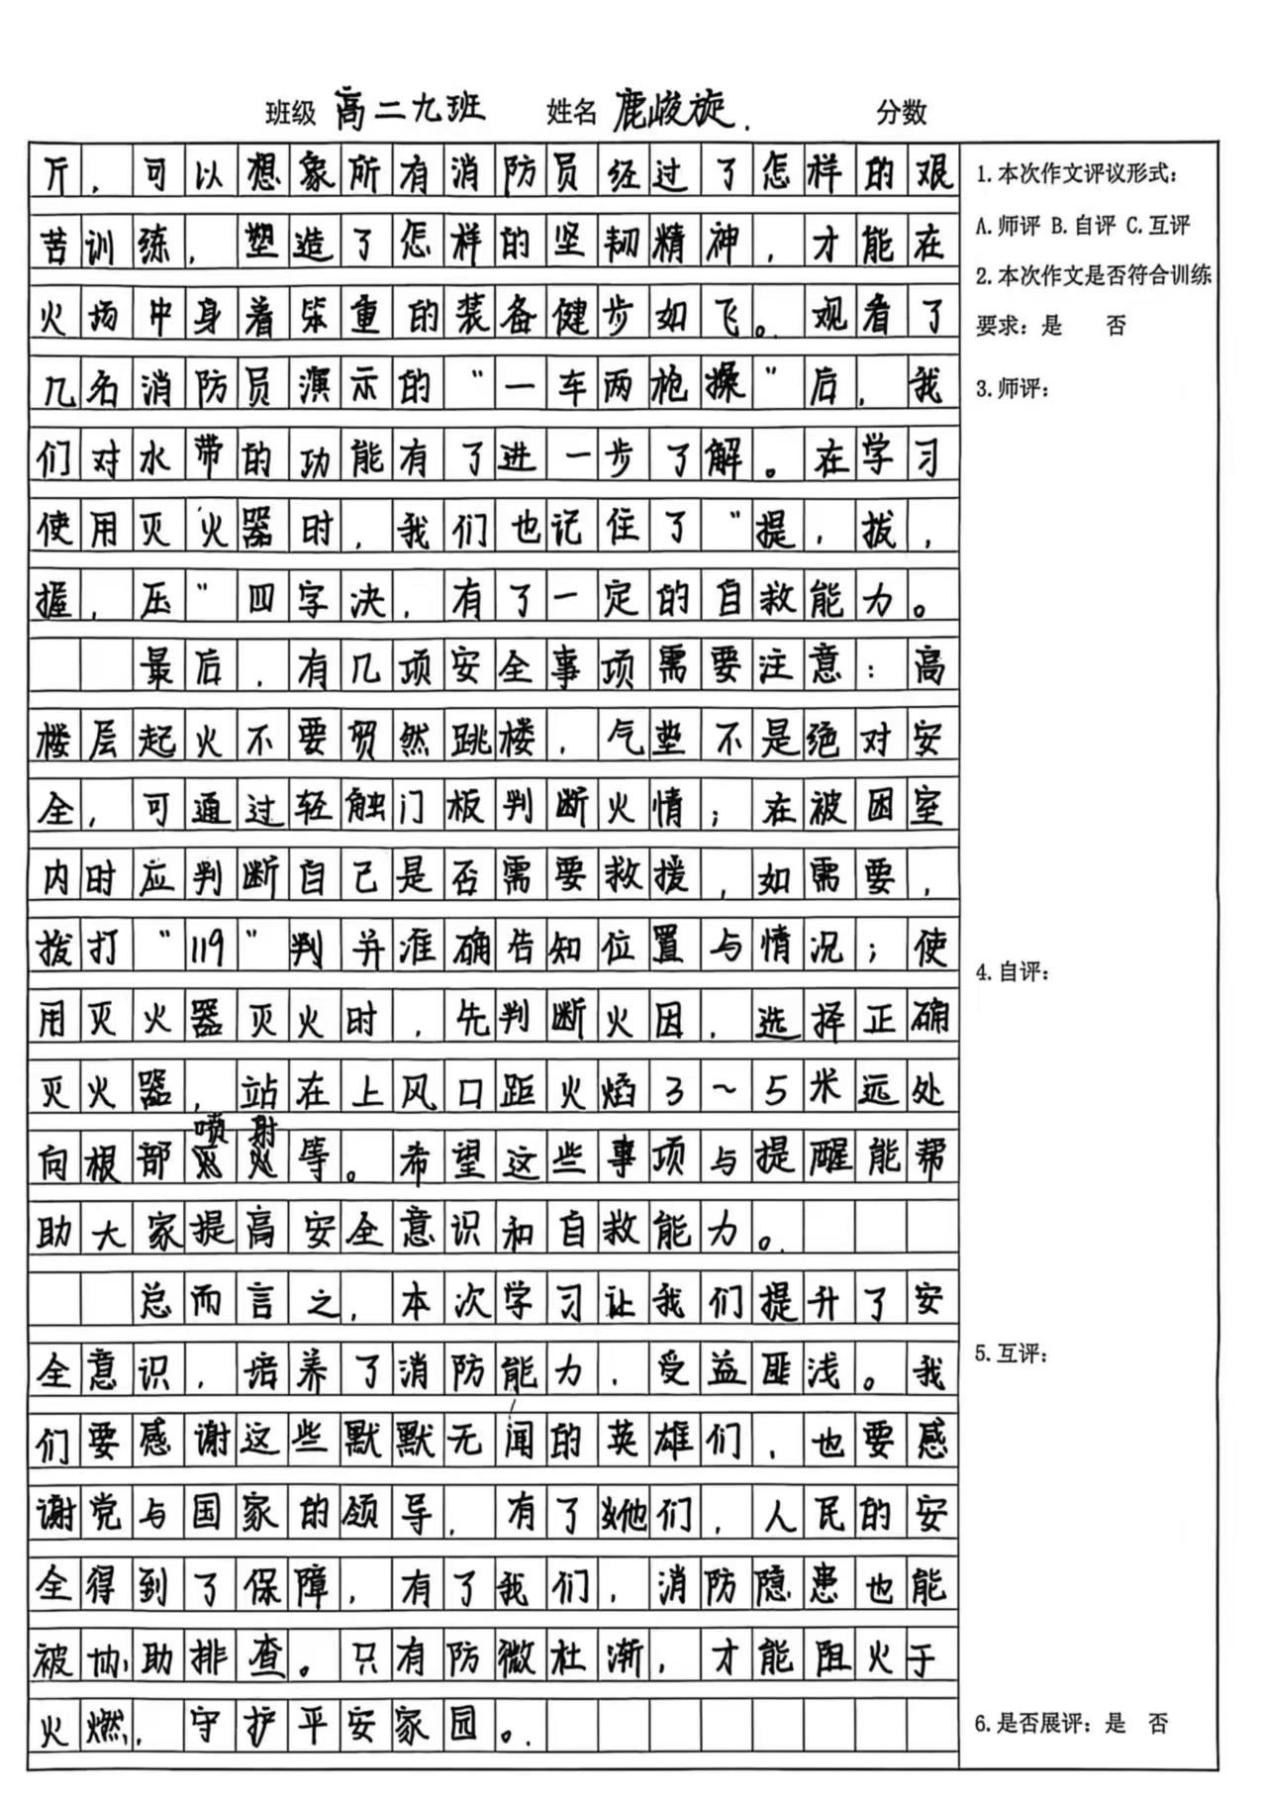 班级 高二九班 姓名 鹿峻旋. 分数
斤，可以想象所有消防员经过了怎样的艰
苦训练，塑造了怎样的坚韧精神，才能在
火场中身着笨重的装备健步如飞。观看了
几名消防员演示的“一车两枪操”后，我
们对水带的功能有了进一步了解。在学习
使用灭火器时，我们也记住了“提，拔，
握，压”四字决，有了一定的自救能力。
最后，有几项安全事项需要注意：高
楼层起火不要贸然跳楼，气垫不是绝对安
全，可通过轻触门板判断火情；在被困室
内时应判断自己是否需要救援，如需要，
拨打“119”判并准确告知位置与情况；使
用灭火器灭火时，先判断火因，选择正确
灭火器，站在上风口距火焰3～5米远处
向根部喷射等。希望这些事项与提醒能帮
助大家提高安全意识和自救能力。
总而言之，本次学习让我们提升了安
全意识，培养了消防能力，受益匪浅。我
们要感谢这些默默无闻的英雄们，也要感
谢党与国家的领导，有了她他们，人民的安
全得到了保障，有了我们，消防隐患也能
被协助排查。只有防微杜渐，才能阻火于
火燃，守护平安家园。
1.本次作文评议形式：
A.师评 B.自评 C.互评
2.本次作文是否符合训练
要求：是 否
3.师评：
4.自评：
5.互评：
6.是否展评：是 否